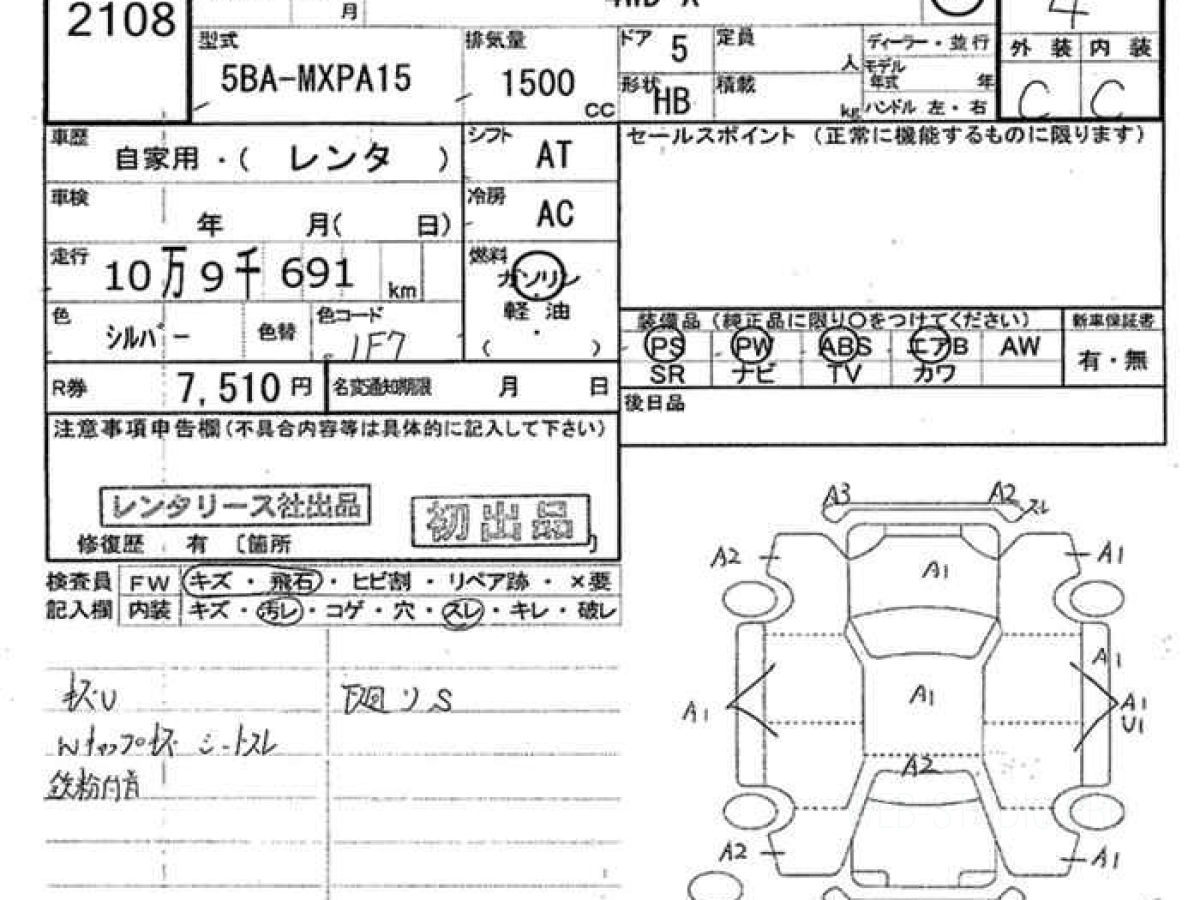 2108
月
4WD X
4
型式
5BA-MXPA15
排気量
1500
CC
ドア 5
定員
人
ディーラー・並行
モデル
年式 年
形状 HB
積載
kg
ハンドル 左・右
外装 内装
C C
車歴
自家用・( レンタ )
シフト
AT
セールスポイント (正常に機能するものに限ります)
車検
年 月( 日)
冷房
AC
走行
10万9千691 km
燃料
ガソリン
軽油
・
( )
色
シルバー
色替
色コード
1F7
装備品 (純正品に限り○をつけてください)
新車保証書
PS PW ABS エアB AW
有・無
SR ナビ TV カワ
R券 7,510円
名変通知期限 月 日
後日品
注意事項申告欄(不具合内容等は具体的に記入して下さい)
レンタリース社出品
初出品
修復歴 有 〔箇所 〕
検査員 FW キズ・飛石・ヒビ割・リペア跡・×要
記入欄 内装 キズ・汚レ・コゲ・穴・スレ・キレ・破レ
キズU
下廻りS
Wキャップキズ シートスレ
鉄粉付着
A3 A2 スレ
A2 A1 A1
A1
A1 A1 A1
U1
A2
A2 A1